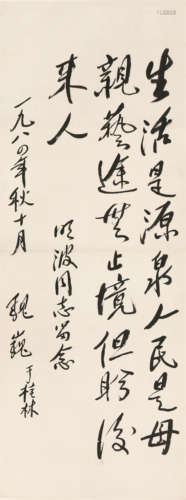 生活是源泉人民是母
親藝途無止境但盼後
來人
明波同志留念
一九八四年秋十月
魏巍于桂林